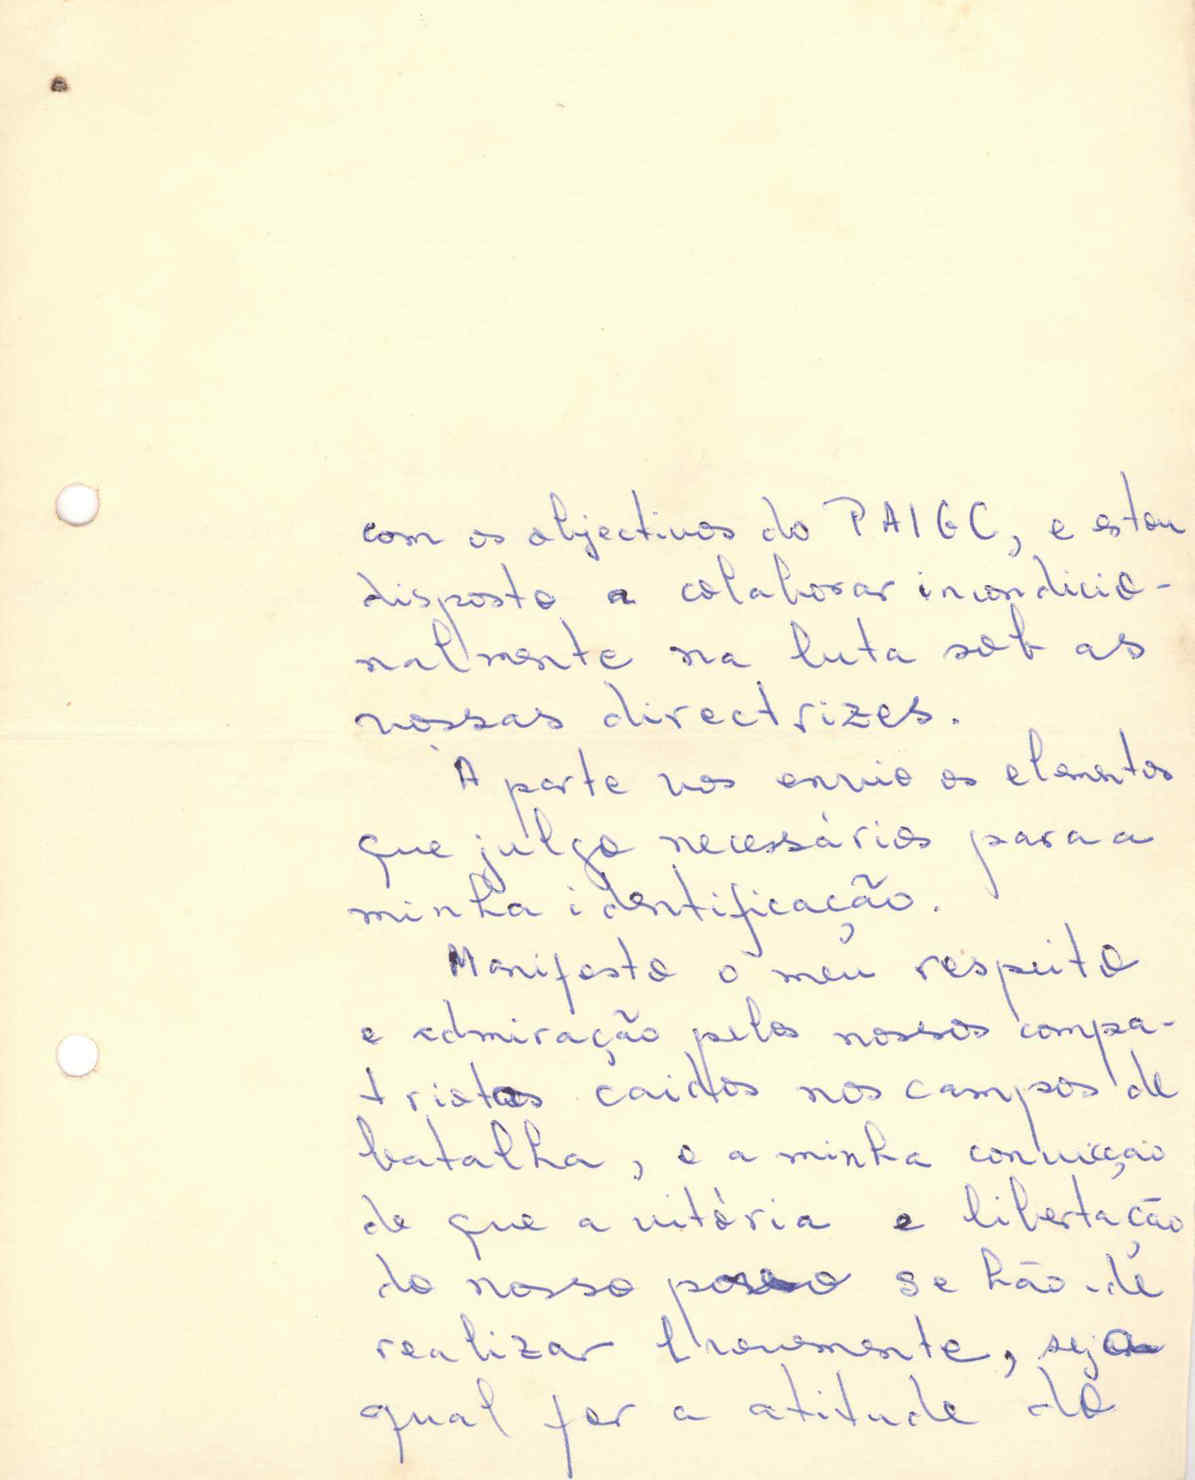 com os objectivos do PAIGC, e estou
disposto a colaborar incondicio-
nalmente na luta sob as
vossas directrizes.
À parte vos envio os elementos
que julgo necessários para a
minha identificação.
Manifesto o meu respeito
e admiração pelos nossos compa-
triotas caidos nos campos de
batalha, e a minha convicção
de que a vitória e libertação
do nosso povo se hão-de
realizar brevemente, seja
qual for a atitude do